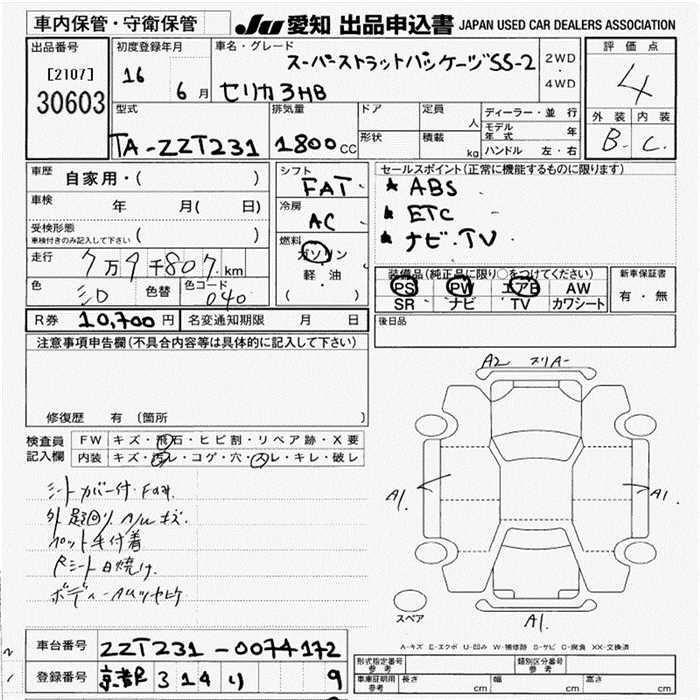 車内保管・守衛保管
JU 愛知 出品申込書 JAPAN USED CAR DEALERS ASSOCIATION
出品番号
[2107]
30603
初度登録年月
16 6月
車名・グレード
スーパーストラットパッケージSS-2
セリカ3HB
2WD
・
4WD
評価点
4
外装 内装
B- C.
型式
TA-ZZT231
排気量
1800cc
ドア
形状
定員
人
積載
kg
ディーラー・並行
モデル年式 年
ハンドル 左・右
車歴 自家用・( )
車検 年 月( 日)
受検形態
車検付きのみ記入して下さい ( )
走行 7万9千807km
色 シロ 色替 色コード 040
シフト
FAT
冷房
AC
燃料
ガソリン
・
軽・油
( )
セールスポイント(正常に機能するものに限ります)
★ ABS
★ ETC
★ ナビ・TV
装備品(純正品に限り○をつけてください)
PS PW エアB AW
SR ナビ TV カワシート
新車保証書
有・無
R券 10,700円
名変通知期限 月 日
後日品
注意事項申告欄(不具合内容等は具体的に記入して下さい)
修復歴 有 (箇所 )
検査員
記入欄
FW キズ・飛石・ヒビ割・リペア跡・X要
内装 キズ・汚レ・コゲ・穴・スレ・キレ・破レ
シートカバー付・Fス汚.
外足回り A/Wキズ.
ペット毛付着
Rシート日焼け.
A2 スリA-
A1.
A1.
A1.
スペア
A-キズ E-エクボ U-凹み W-補修跡 S-サビ C-腐食 XX-交換済
車台番号 ZZT231-0074172
登録番号 京都R 314 り 9
形式指定番号
参考
類別区分番号
参考
車庫証明用
参考
長さ cm
幅 cm
高さ cm